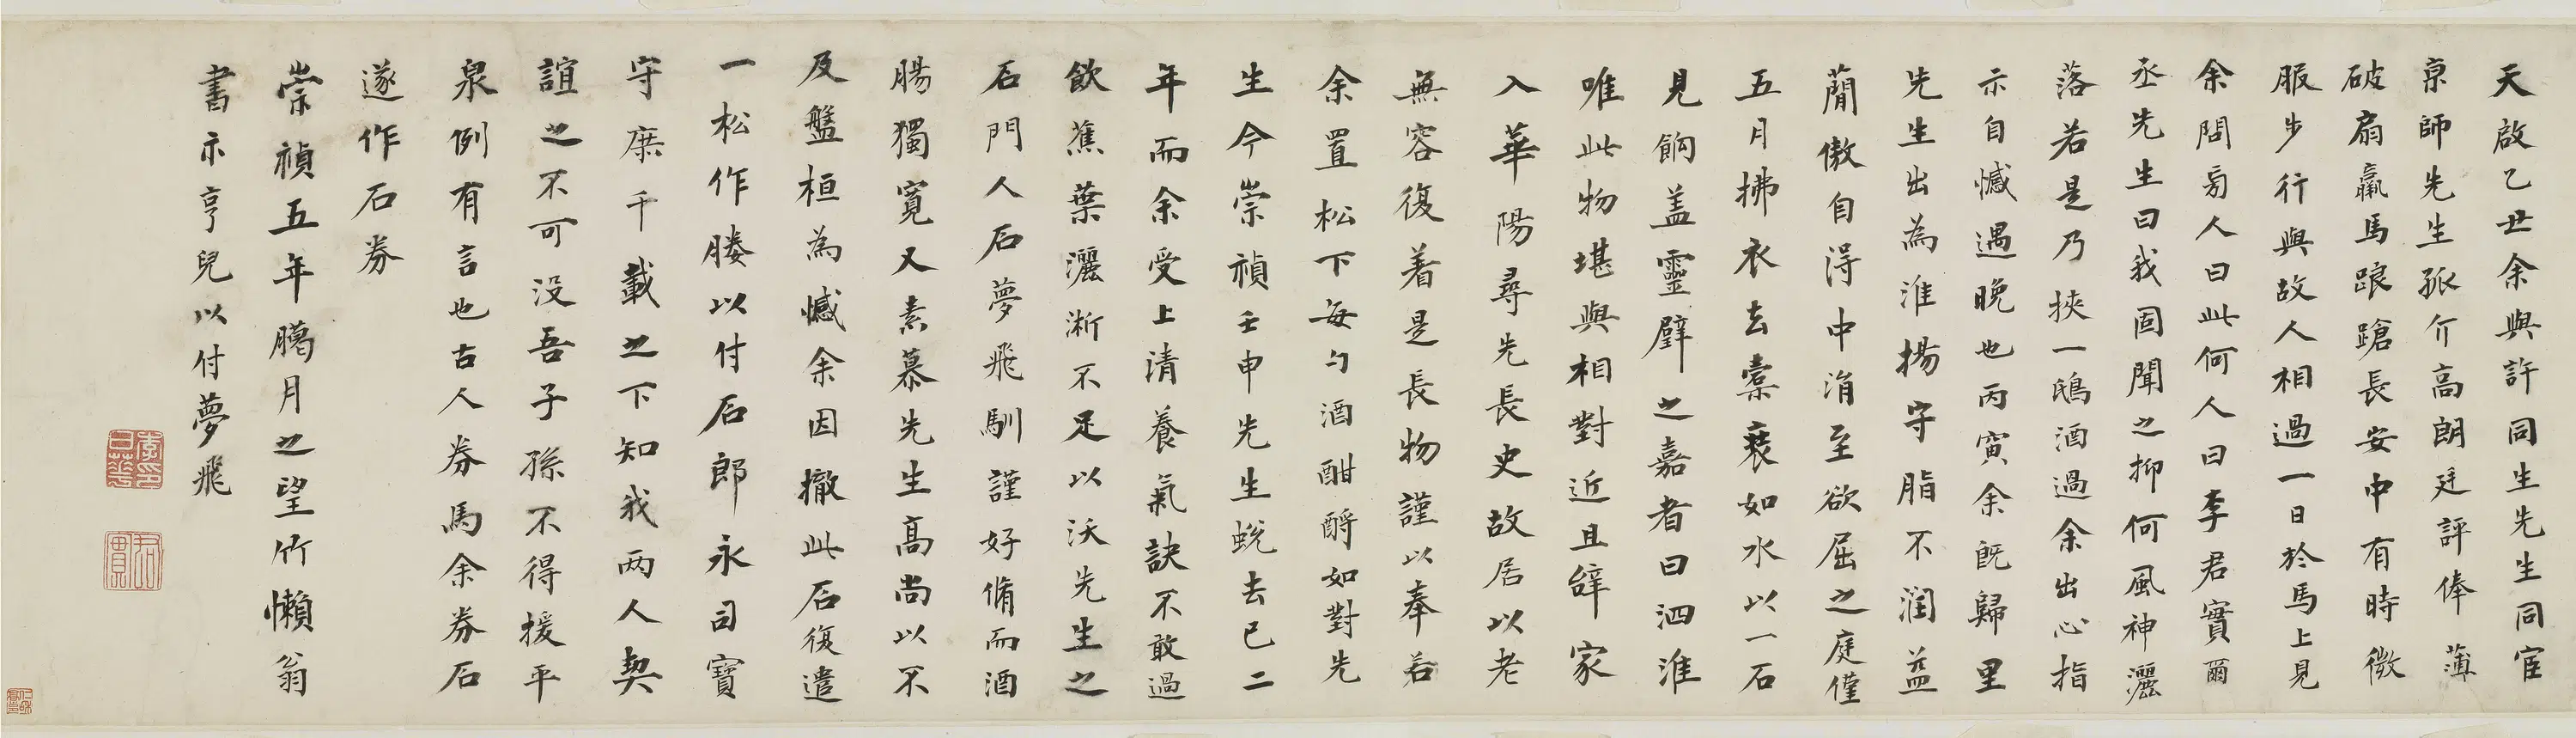 天啟乙丑余與許同生先生同宦
京師先生孤介高朗廷評俸薄
破扇羸馬踉蹌長安中有時微
服步行與故人相過一日於馬上見
余問旁人曰此何人曰李君實爾
丞先生曰我固聞之抑何風神灑
落若是乃挾一鴟酒過余出心指
示自憾遇晚也丙寅余旣歸里
先生出為淮揚守脂不潤益
簡傲自得中涓至欲屈之庭僅
五月拂衣去橐裝如水以一石
見餉盖靈璧之嘉者曰泗淮
唯此物堪與相對近且辭家
入華陽尋先長史故居以老
無容復着是長物謹以奉若
余置松下每勺酒酣酹如對先
生今崇禎壬申先生蛻去已二
年而余受上清養氣訣不敢過
飲蕉葉灑淅不足以沃先生之
石門人石夢飛馴謹好脩而酒
腸獨寬又素慕先生髙尚以不
及盤桓為憾余因撤此石復遣
一松作媵以付石郎永司寶
守庶千載之下知我两人契
誼之不可没吾子孫不得援平
泉例有言也古人券馬余券石
遂作石券
崇禎五年臈月之望竹懶翁
書示亨兒以付夢飛
李印日華
君實